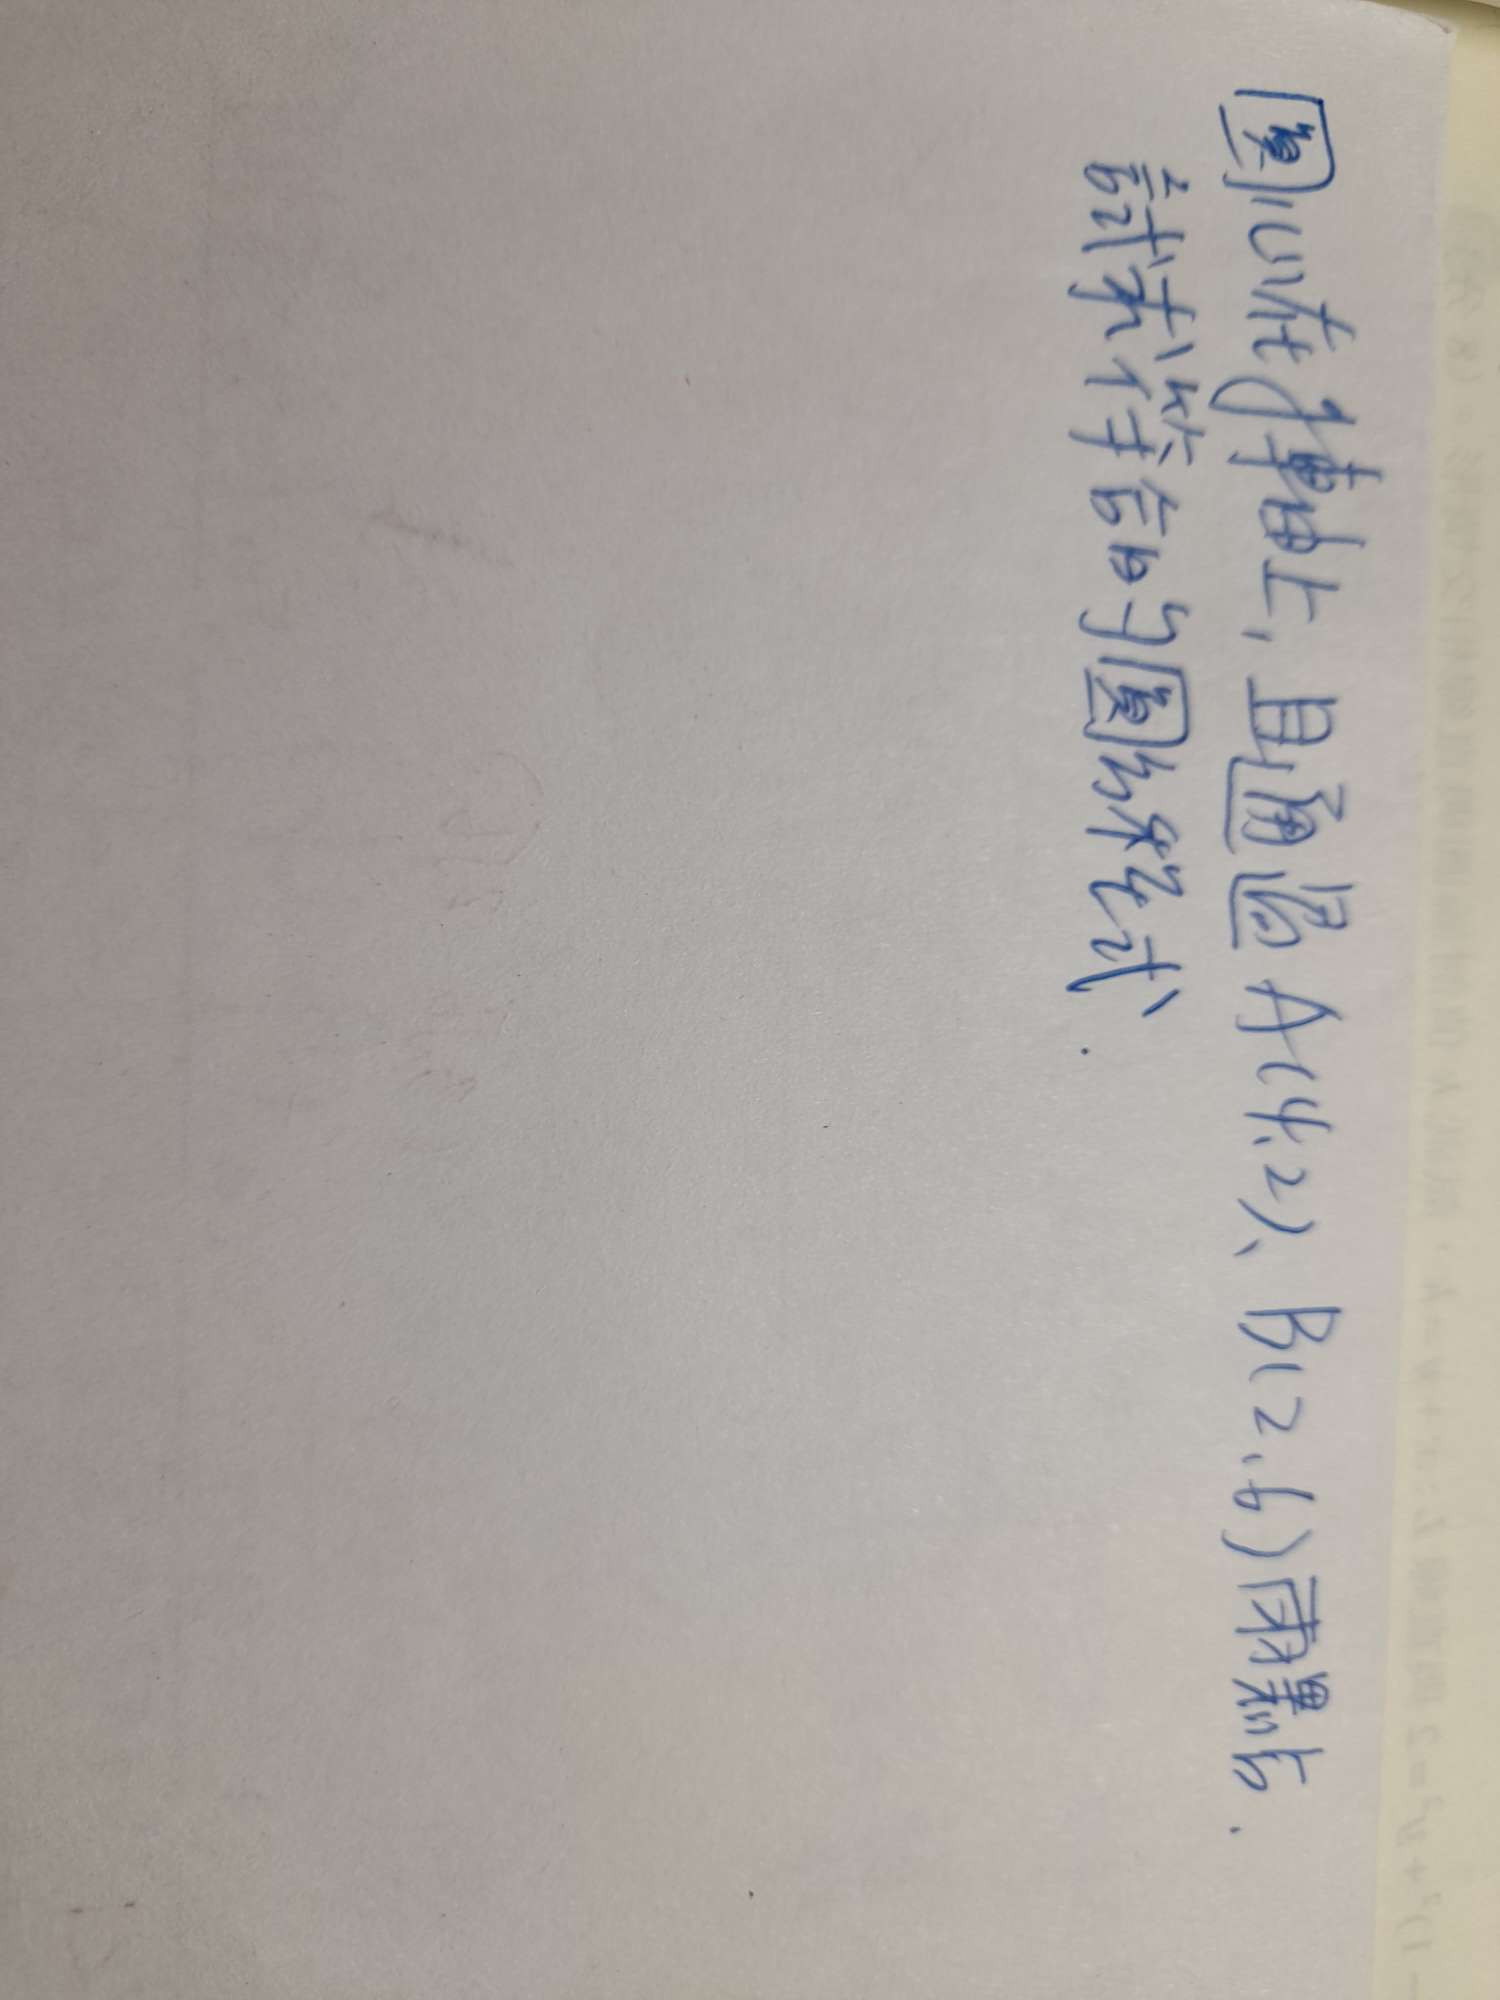 圓心在y軸上,且通過A(4,2)、B(2,6)兩點.
試求符合的圓方程式.